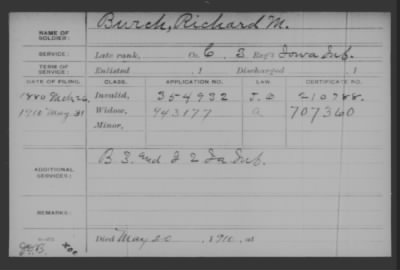 NAME OF SOLDIER: Burch, Richard M.
SERVICE: Late rank, Co. C, 3 Reg't Iowa Inf.
TERM OF SERVICE: Enlisted , 1 Discharged , 1
DATE OF FILING. CLASS. APPLICATION NO. LAW. CERTIFICATE NO.
1880 Mch 26, Invalid, 354932 210788.
1910 May 31 Widow, 943177 a 707360
Minor,
ADDITIONAL SERVICES: B 3. and I 2 Ia Inf.
REMARKS:
Died May 20, 1910, at